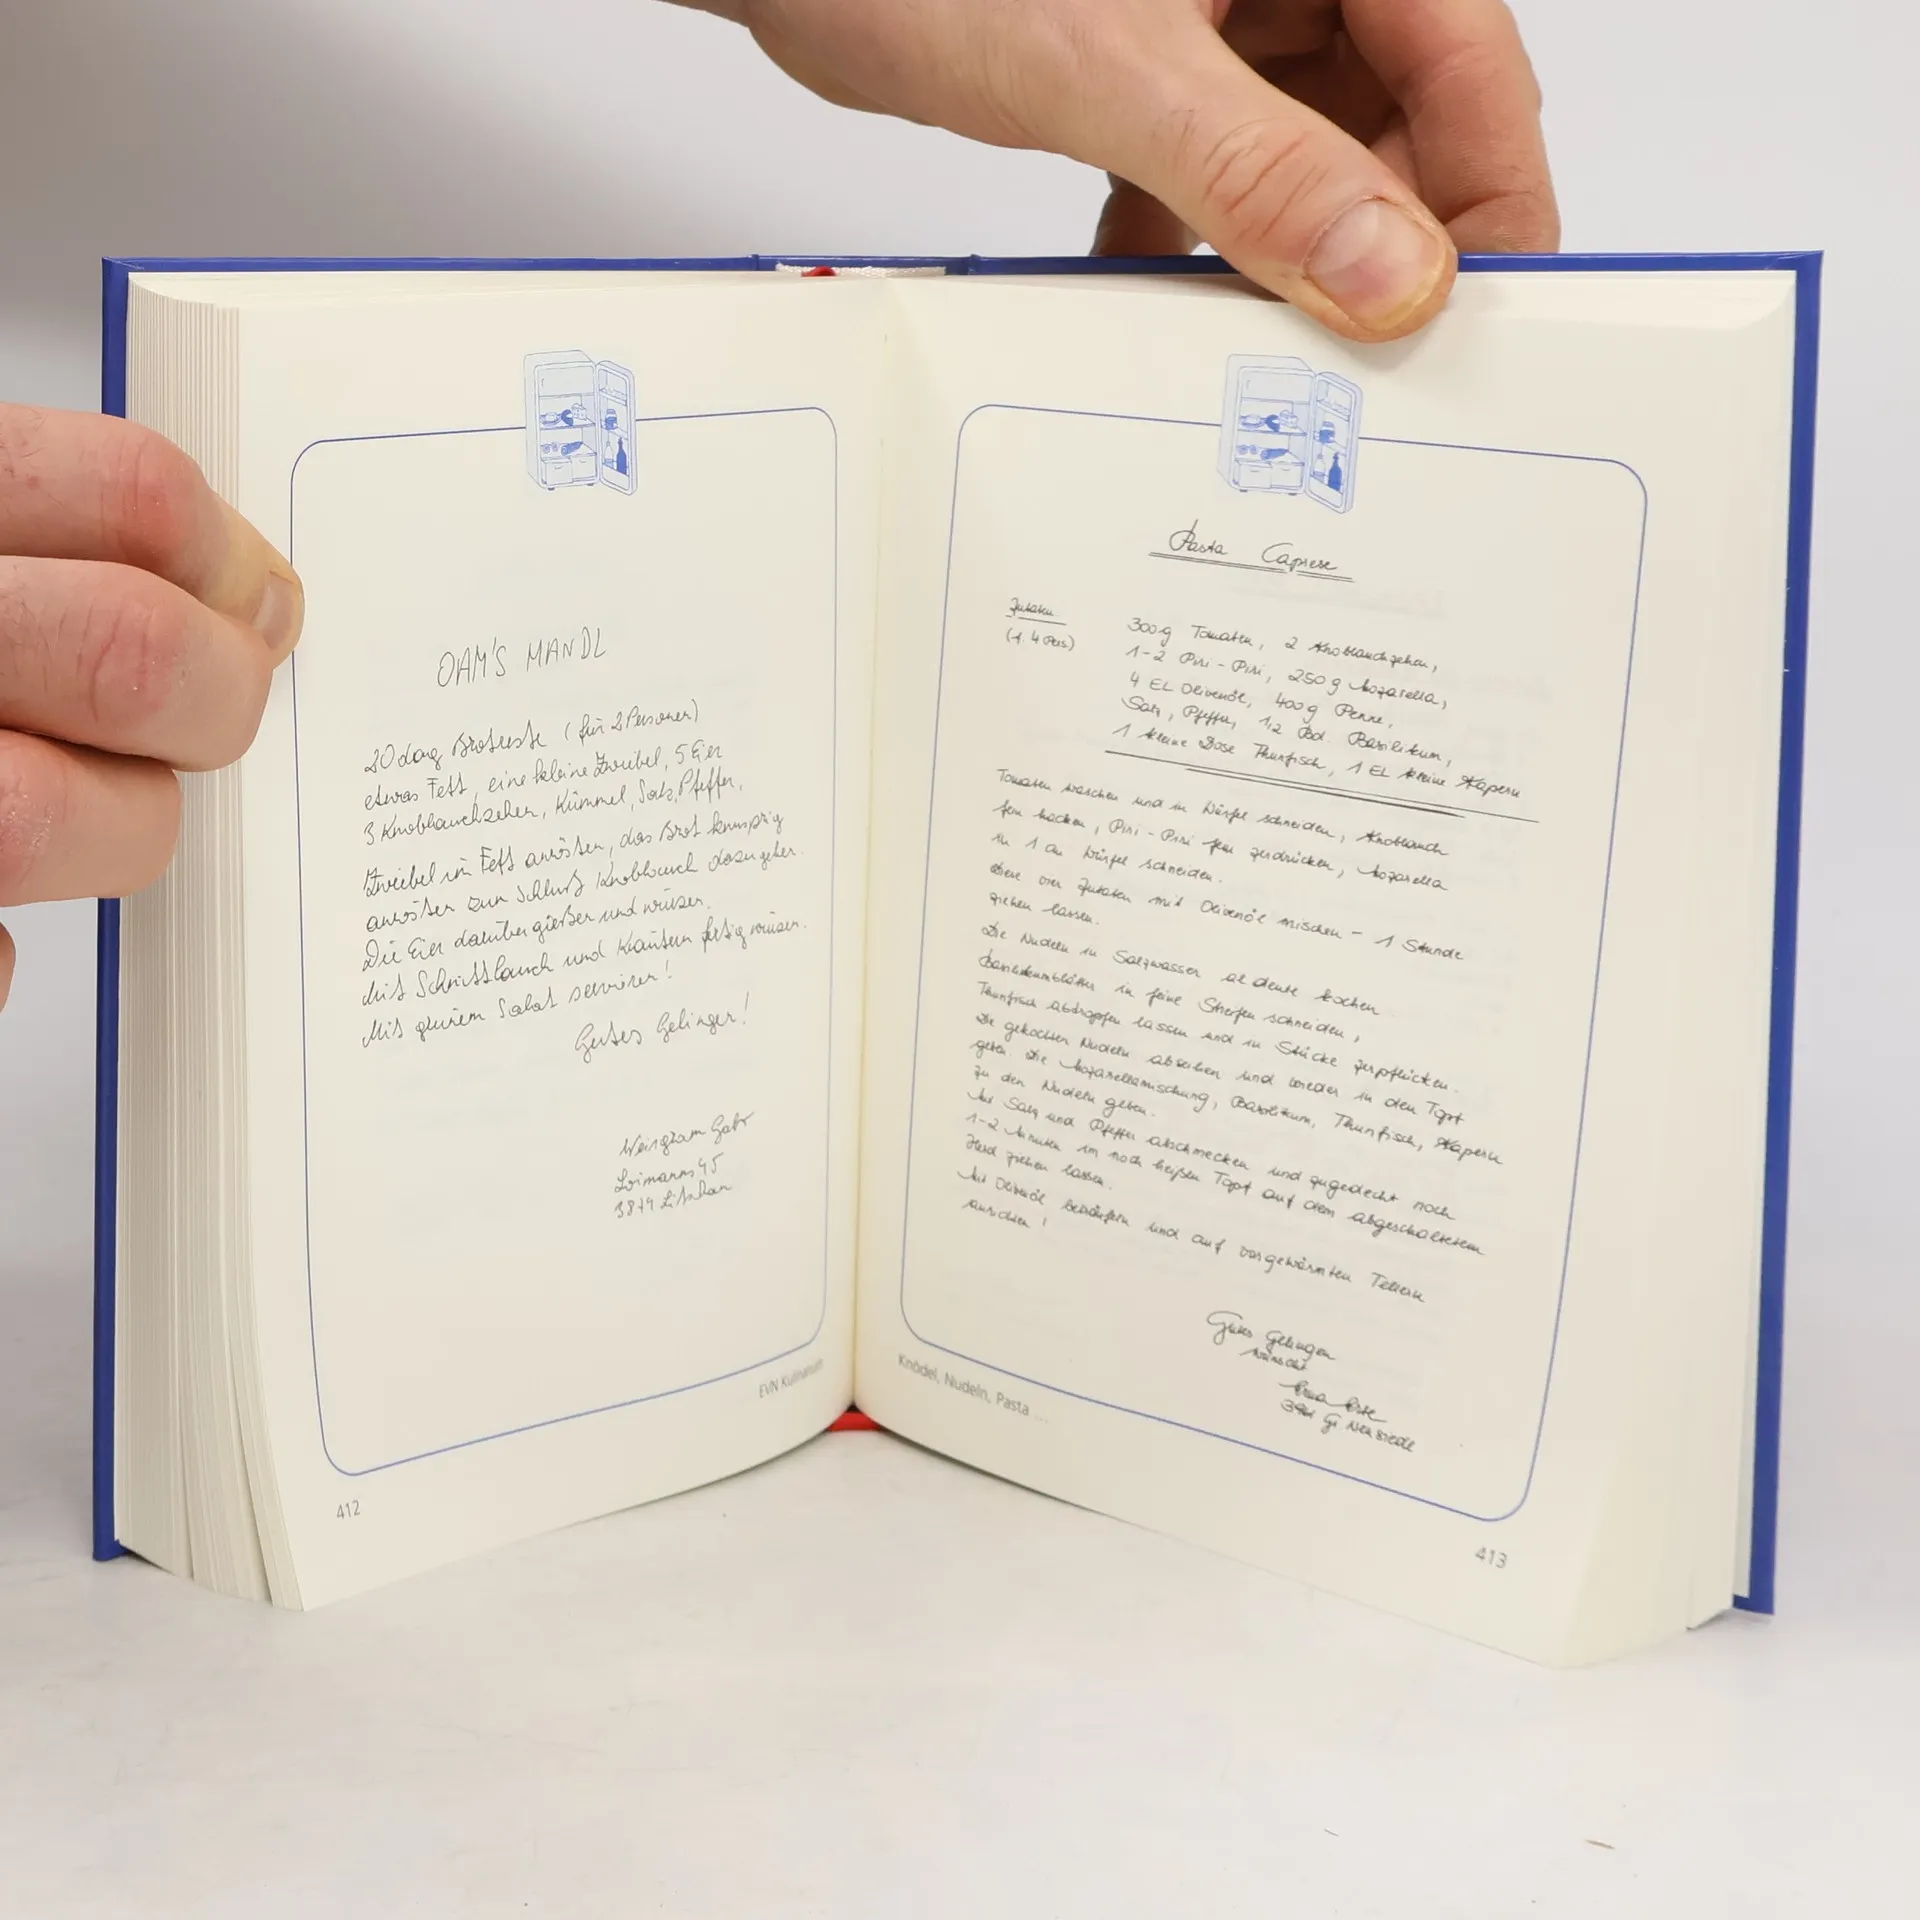 OAM'S MANDL
20 dang Brotreste (für 2 Personen)
etwas Fett, eine kleine Zwiebel, 5 Eier
3 Knoblauchzehen, Kümmel, Salz, Pfeffer,
Zwiebel in Fett anrösten, das Brot knusprig
anrösten zum Schluß Knoblauch dazugeben.
Die Eier darüber gießen und würzen.
Mit Schnittlauch und Kräutern fertig würzen.
Mit grünem Salat servieren!
Gutes Gelingen!
Gabi
Loimanns 45
3874 Litschau
EVN Kulinarisch
412
Pasta Caprese
Zutaten
(f. 4 Pers.)
300g Tomaten, 2 Knoblauchzehen,
1-2 Piri-Piri, 250g Mozarella,
4 EL Olivenöl, 400g Penne,
Salz, Pfeffer, 1/2 Bd. Basilikum,
1 kleine Dose Thunfisch, 1 EL kleine Kapern
Tomaten waschen und in Würfel schneiden, Knoblauch
fein hacken, Piri-Piri fein zerdrücken, Mozarella
in 1 cm Würfel schneiden.
Diese vier Zutaten mit Olivenöl mischen - 1 Stunde
ziehen lassen.
Die Nudeln in Salzwasser al dente kochen.
Basilikumblätter in feine Streifen schneiden,
Thunfisch abtropfen lassen und in Stücke zerpflücken.
Die gekochten Nudeln abseihen und wieder in den Topf
geben. Die Mozarellamischung, Basilikum, Thunfisch, Kapern
zu den Nudeln geben.
Mit Salz und Pfeffer abschmecken und zugedeckt noch
1-2 Minuten im noch heißen Topf auf dem abgeschalteten
Herd ziehen lassen.
Mit Olivenöl beträufeln und auf vorgewärmten Tellern
anrichten!
Gutes Gelingen
wünscht
Gr Neusiedl
Knödel, Nudeln, Pasta ...
413